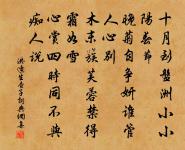 十月到盤洲小小
陽春節
晚菊自争妍誰管
人心别
木末簇芙蓉禁得
霜如雪
心賞四時同不與
痴人説
洪適生查子詞典網